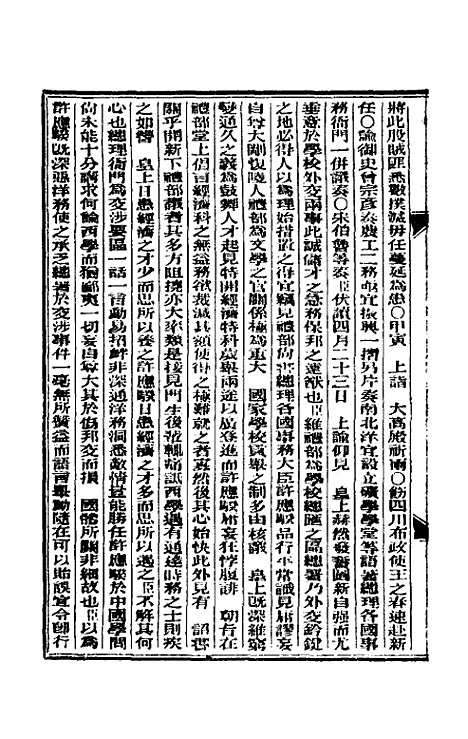 將此股賊匪悉數撲滅毋任蔓延為患○甲寅　上詣　大高殿祈雨○飭四川布政使王之春速赴新
任○諭御史曾宗彥奏農工二務亟宜振興一摺另片奏南北洋宜設立礦學學堂等語著總理各國事
務衙門一併議奏○宋伯魯等奏臣伏讀四月二十三日　上諭仰見　皇上赫然發憤圖新自強而尤
垂意於學校外交兩事此誠儲才之急務保邦之遠猷也臣維禮部為學校總匯之區總署乃外交鈐鍵
之地必得人以為理始措置之得宜竊見禮部尚書總理各國事務大臣許應騤品行平常識見庸謬妄
自尊大剛愎凌人禮部為文學之官關係極為重大　國家學校貢舉之制多由核議　皇上既深維窮
變通久之義為鼓舞人才起見特開經濟特科歲舉兩途以廣登進而許應騤庸妄狂悖腹誹　朝旨在
禮部堂上倡言經濟科之無益務欲裁減其額使得之極難就之者寡然後其心始快此外見有　詔書
關乎開新下禮部議者其多方阻撓亦大率類是接見門生後輩輒痛詆西學遇有通達時務之士則疾
之如讐　皇上日患經濟之才少而思所以養之許應騤日患經濟之才多而思所以遏之臣不解其何
心也總理衙門為交涉要區一話一言動易招衅非深通洋務洞悉敵情豈能勝任許應騤於中國學問
尚未能十分講求何論西學而猥鄙夷一切妄自尊大其於傷邦交而損　國體所關非細故也臣以為
許應騤既深惡洋務使之承乏總署於交涉事件一毫無所贊益而語言舉動隨在可以貽誤宜令卽行